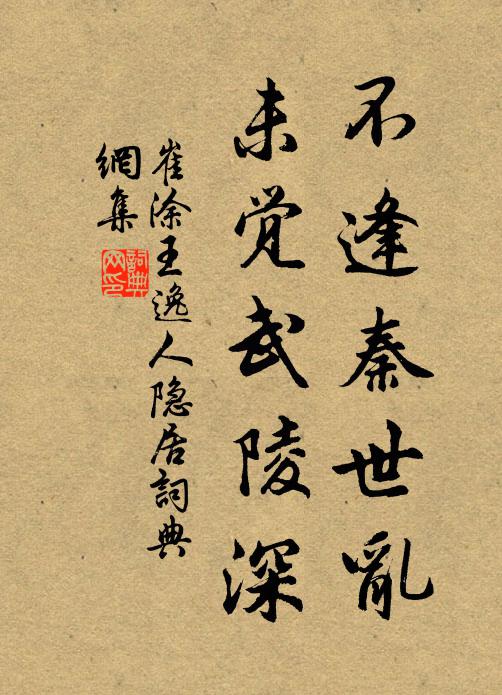 不逢秦世亂
未觉武陵深
崔涂王逸人隐居詞典
網集
詞典网印